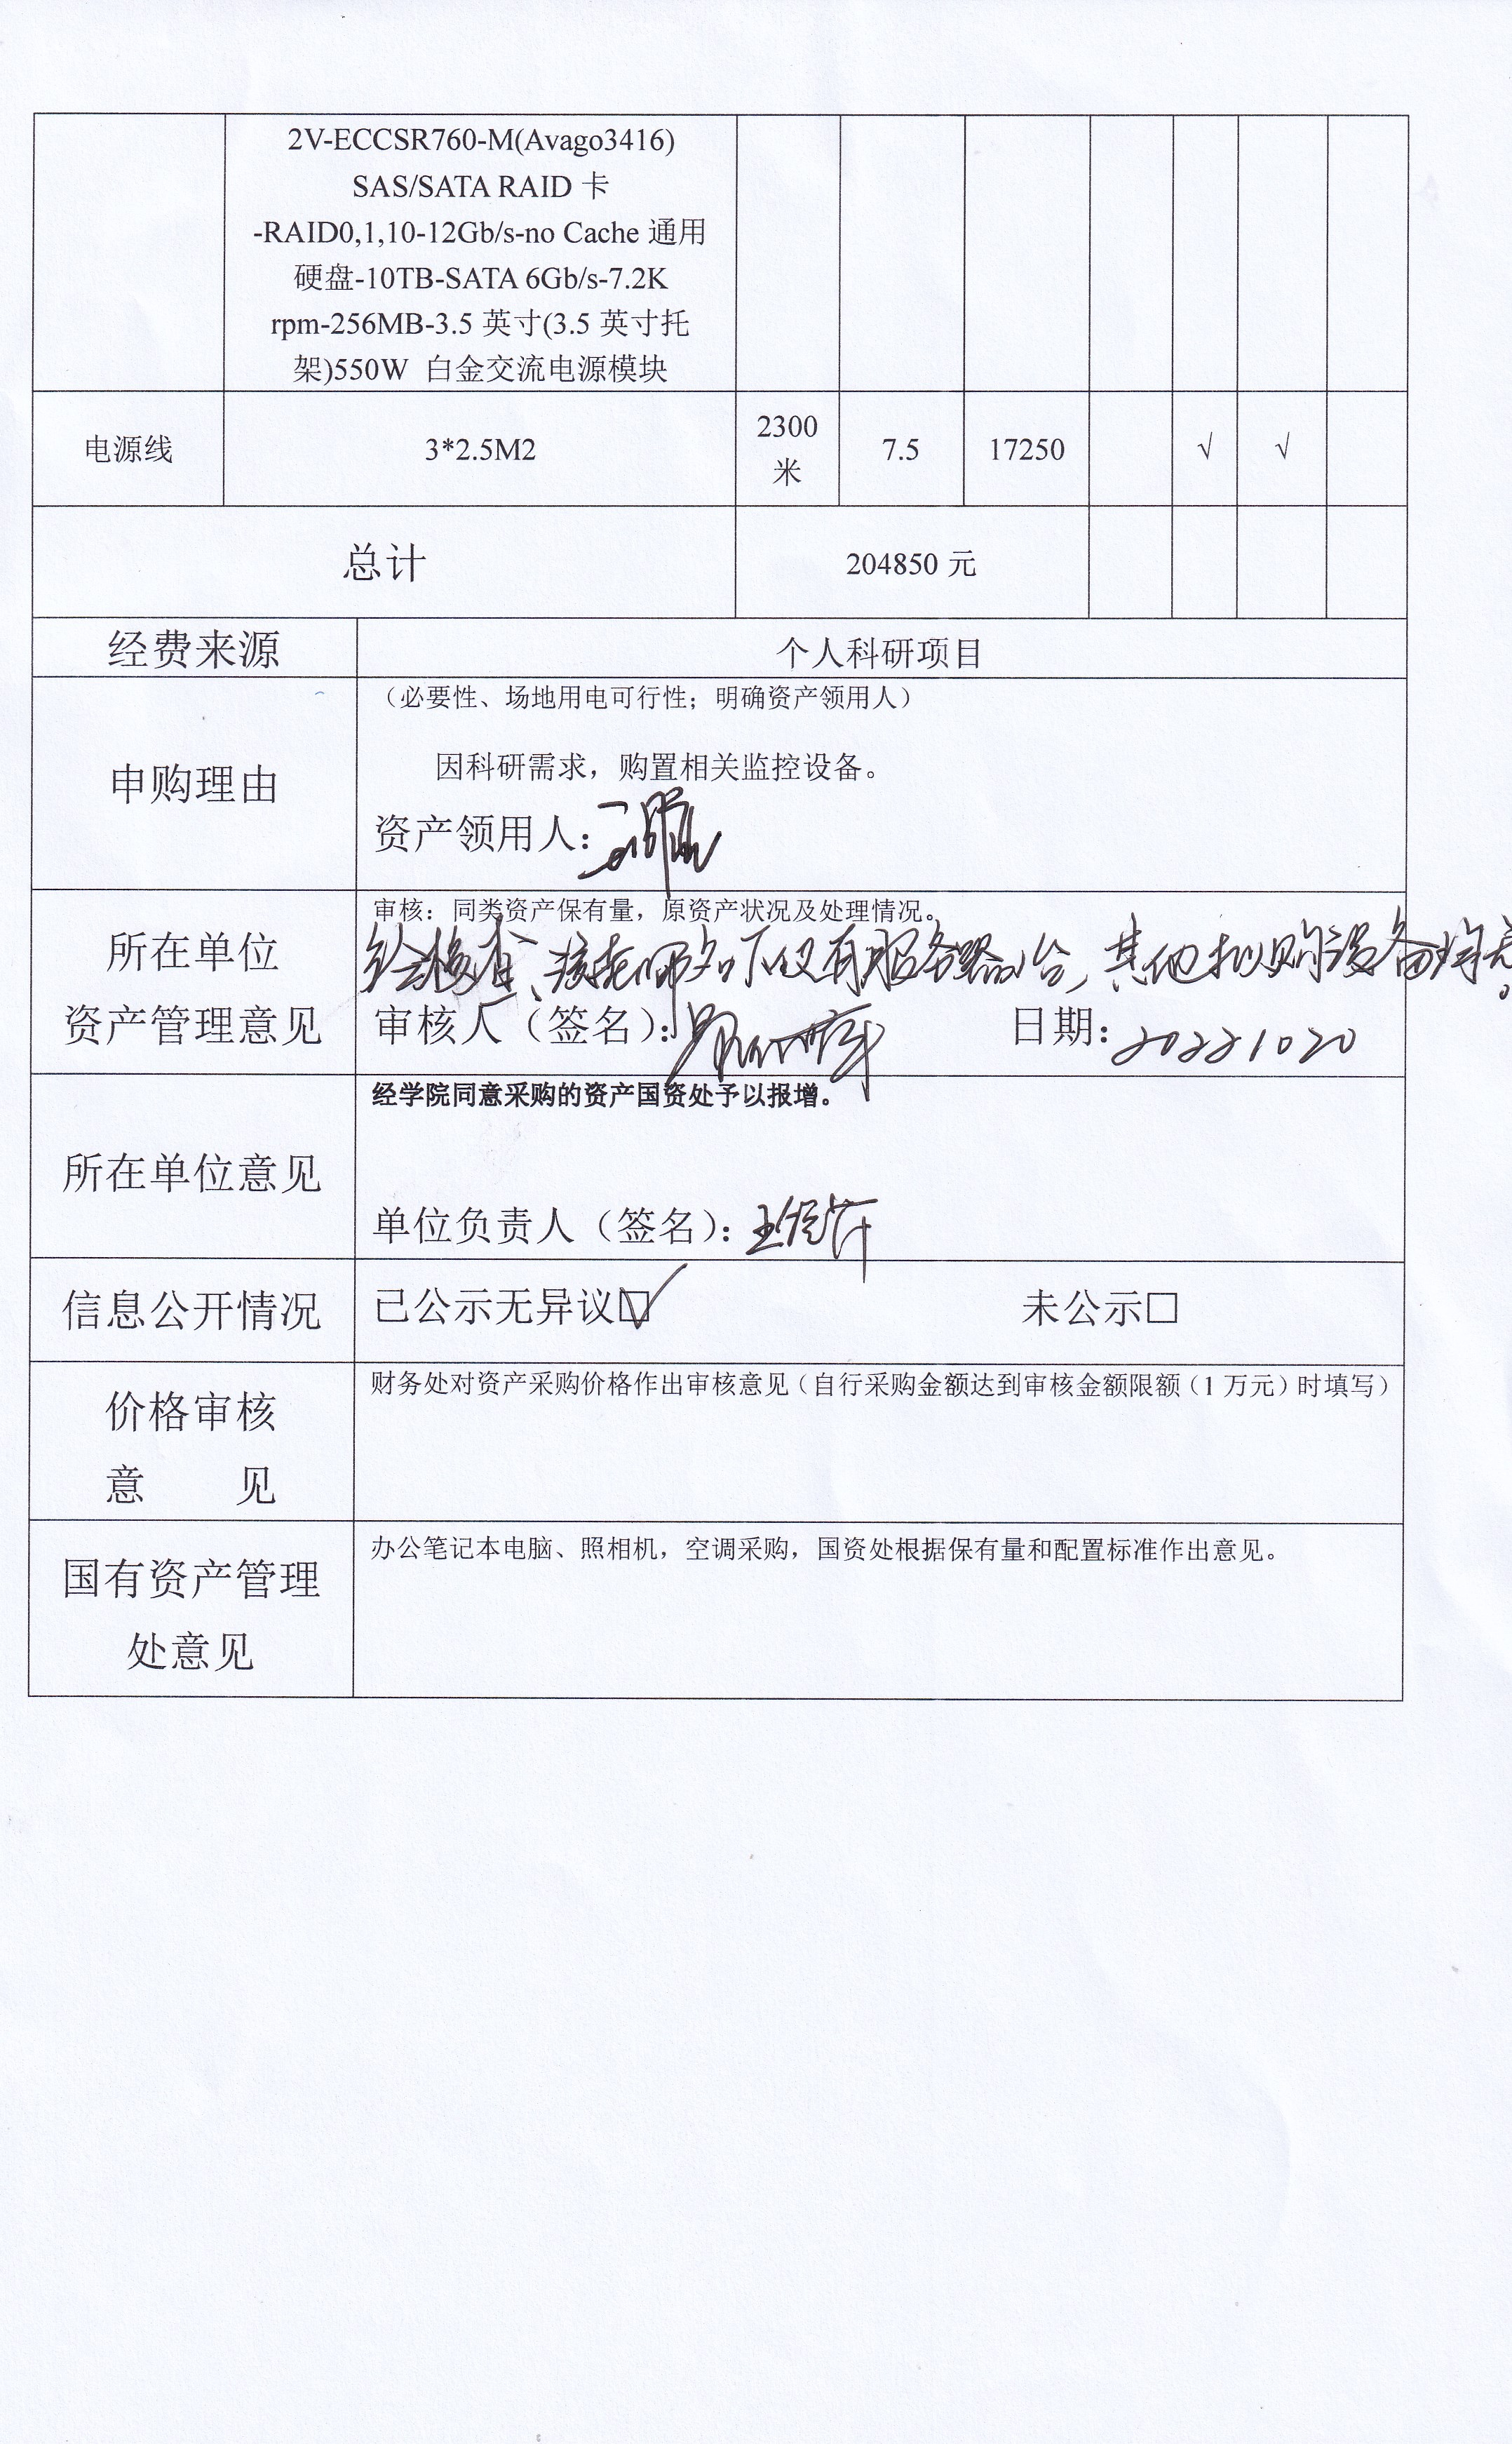 2V-ECCSR760-M(Avago3416)
SAS/SATA RAID 卡
-RAID0,1,10-12Gb/s-no Cache 通用
硬盘-10TB-SATA 6Gb/s-7.2K
rpm-256MB-3.5 英寸(3.5 英寸托
架)550W 白金交流电源模块
电源线 3*2.5M2 2300 米 7.5 17250 √ √
总计 204850 元
经费来源 个人科研项目
申购理由
（必要性、场地用电可行性；明确资产领用人）
因科研需求，购置相关监控设备。
资产领用人：
所在单位
资产管理意见
审核：同类资产保有量，原资产状况及处理情况。
经核查，该老师名下仅有服务器1台，其他拟购设备均无。
审核人（签名）： 日期：20221020
所在单位意见
经学院同意采购的资产国资处予以报增。
单位负责人（签名）：
信息公开情况 已公示无异议☑ 未公示□
价格审核
意 见
财务处对资产采购价格作出审核意见（自行采购金额达到审核金额限额（1 万元）时填写）
国有资产管理
处意见
办公笔记本电脑、照相机，空调采购，国资处根据保有量和配置标准作出意见。